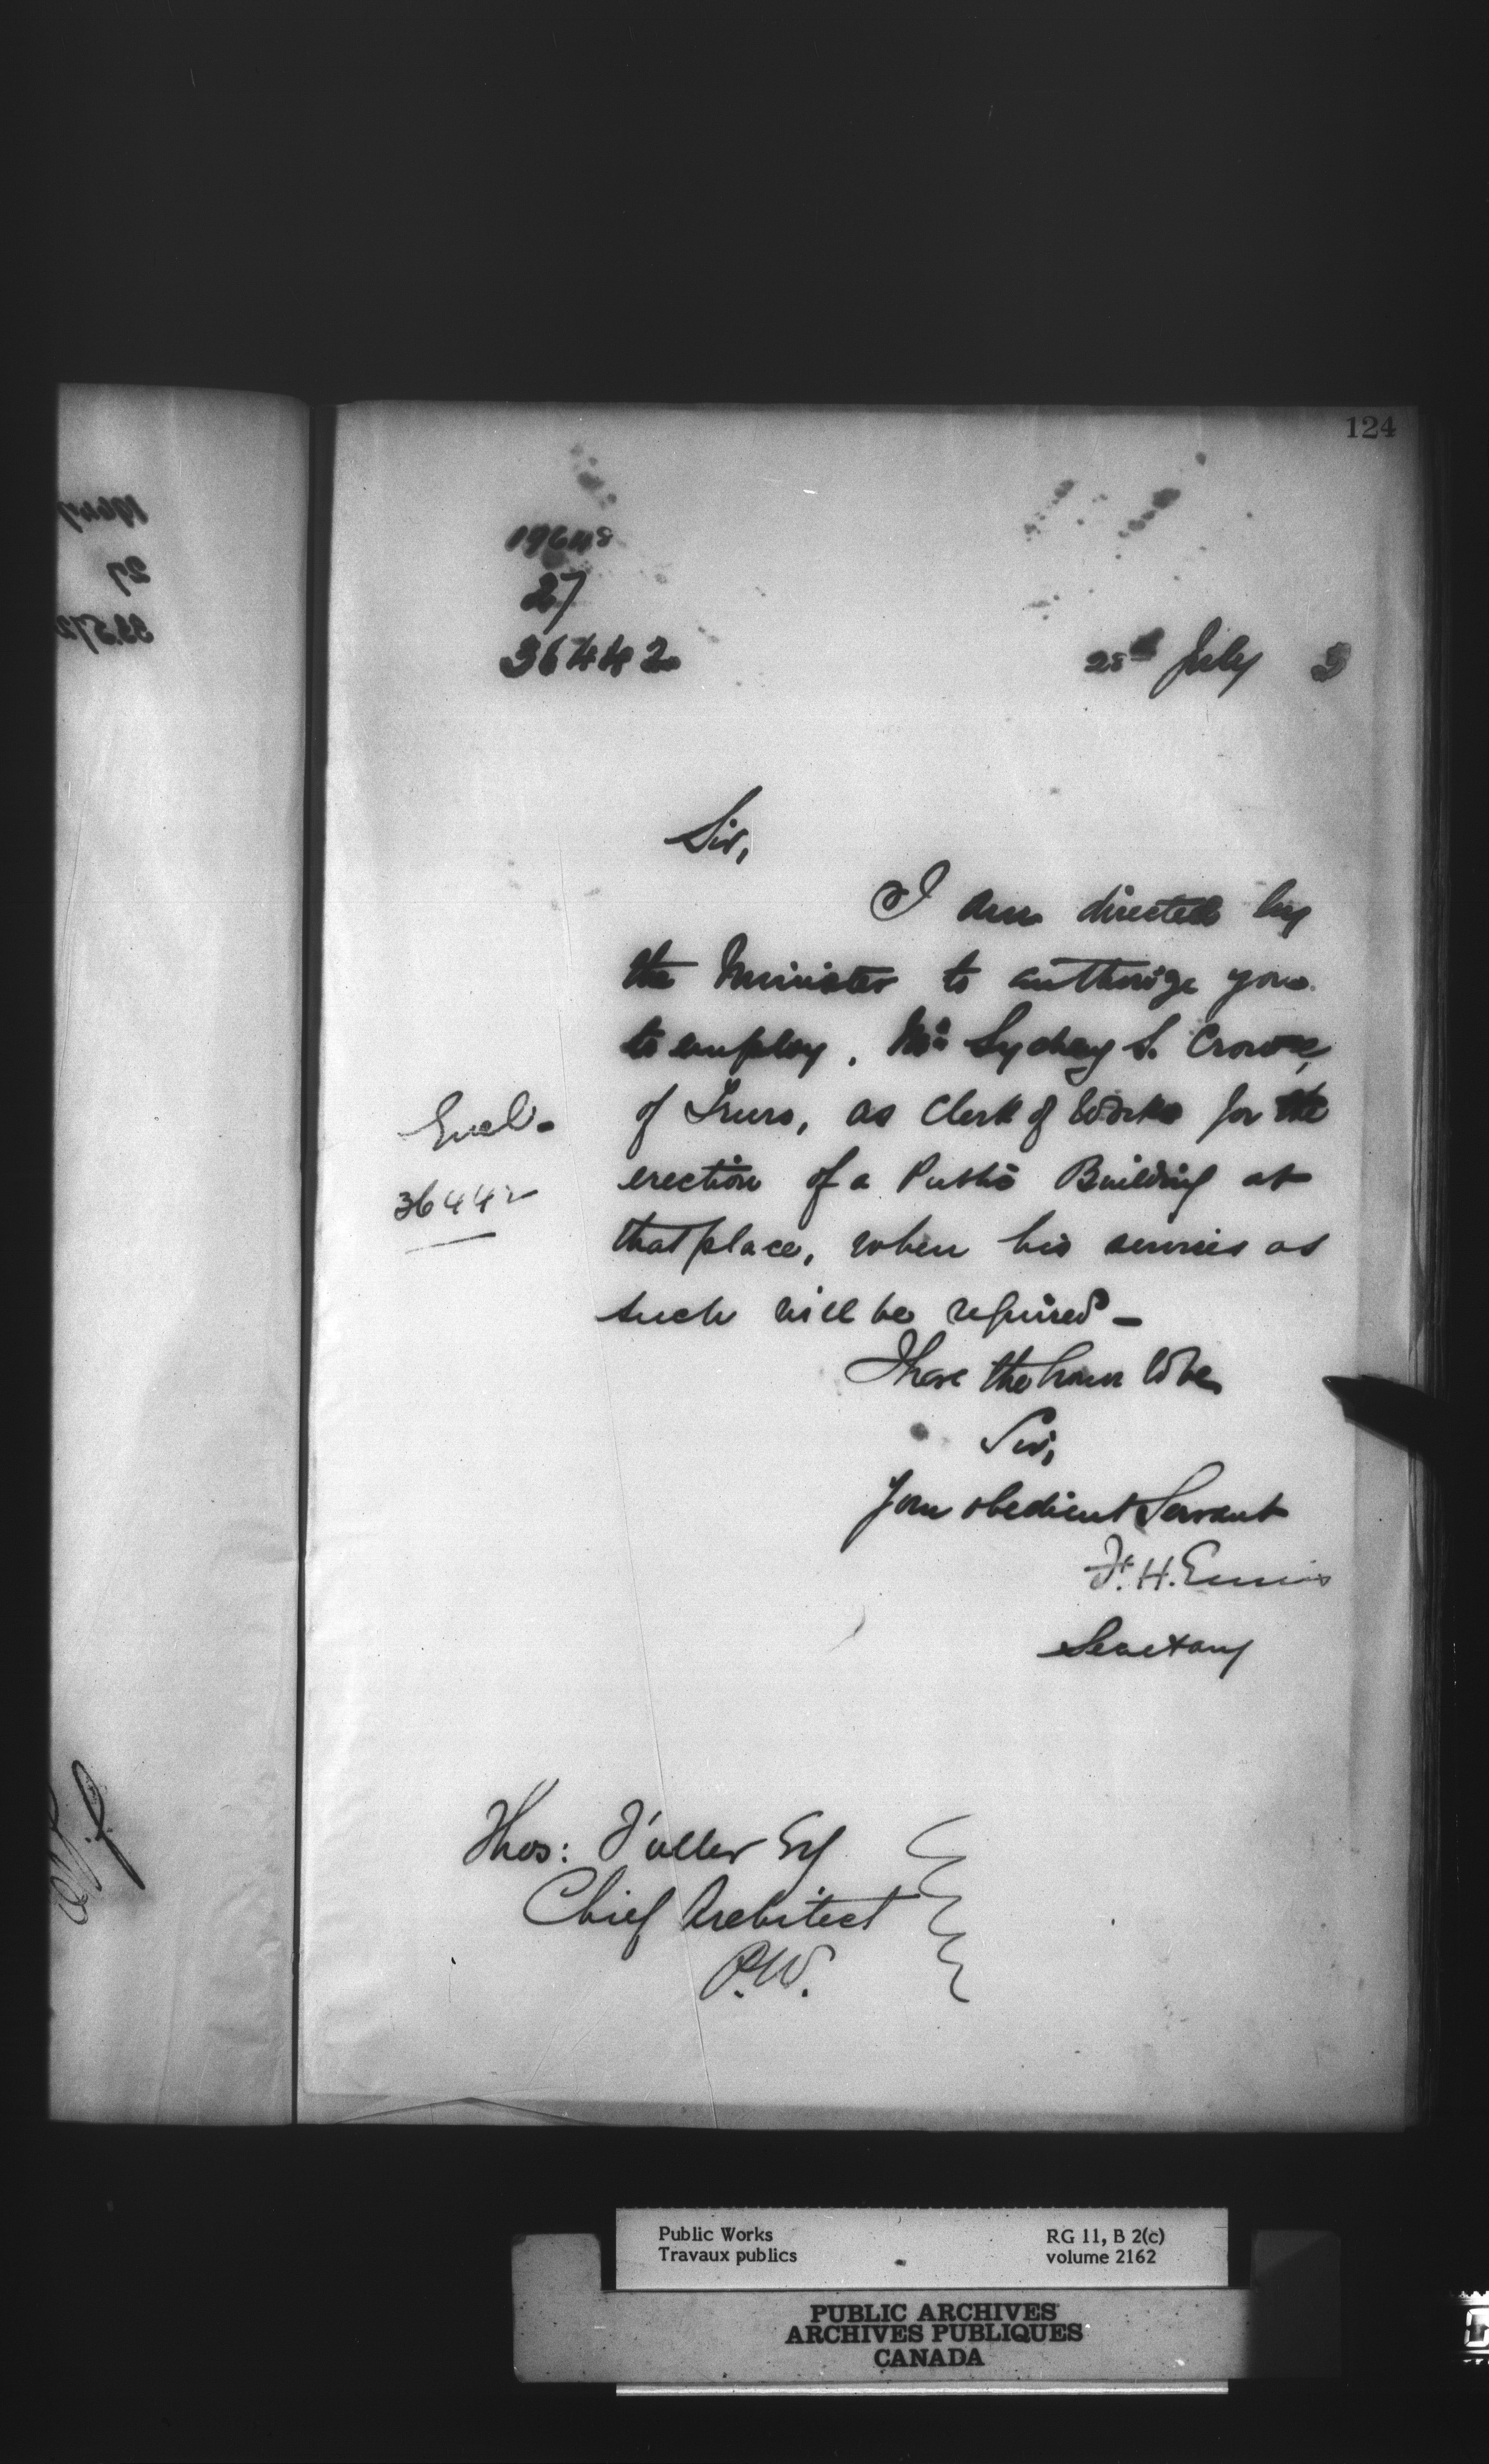 124
27
36442
28th July 3
Sir,
I am directed by
the Minister to authorize you
to employ, Mr Sydney S. Crowe,
of Truro, as Clerk of Works for the
erection of a Public Building at
that place, when his services as
such will be required -
Encl.
36442
I have the honor to be
Sir,
Your obedient Servant
F. H. Ennis
Secretary
Thos: Fuller Esq
Chief Architect
P.W.
Public Works
Travaux publics
RG 11, B 2(c)
volume 2162
PUBLIC ARCHIVES
ARCHIVES PUBLIQUES
CANADA